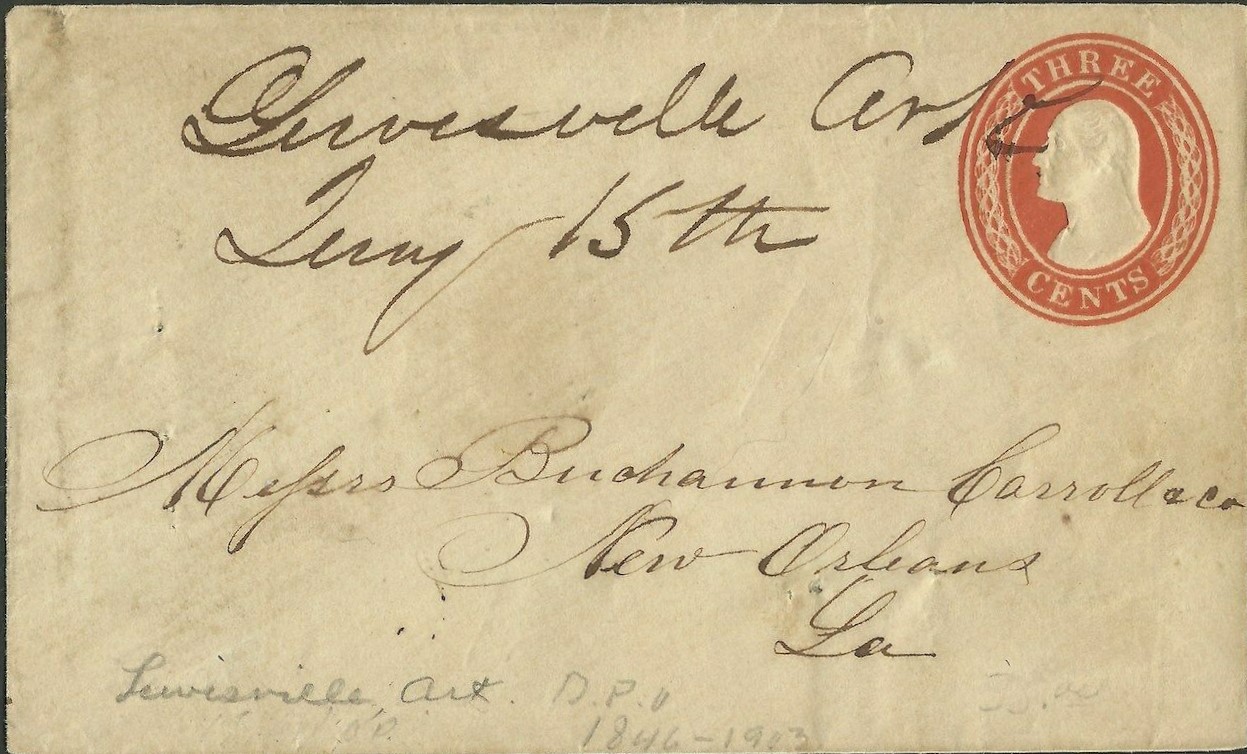 Lewisville Ark
THREE
CENTS
Jany 15th
Messrs Buchannon Carroll & co
New Orleans
La
Lewisville, Ark. D.P.O
1846-1903